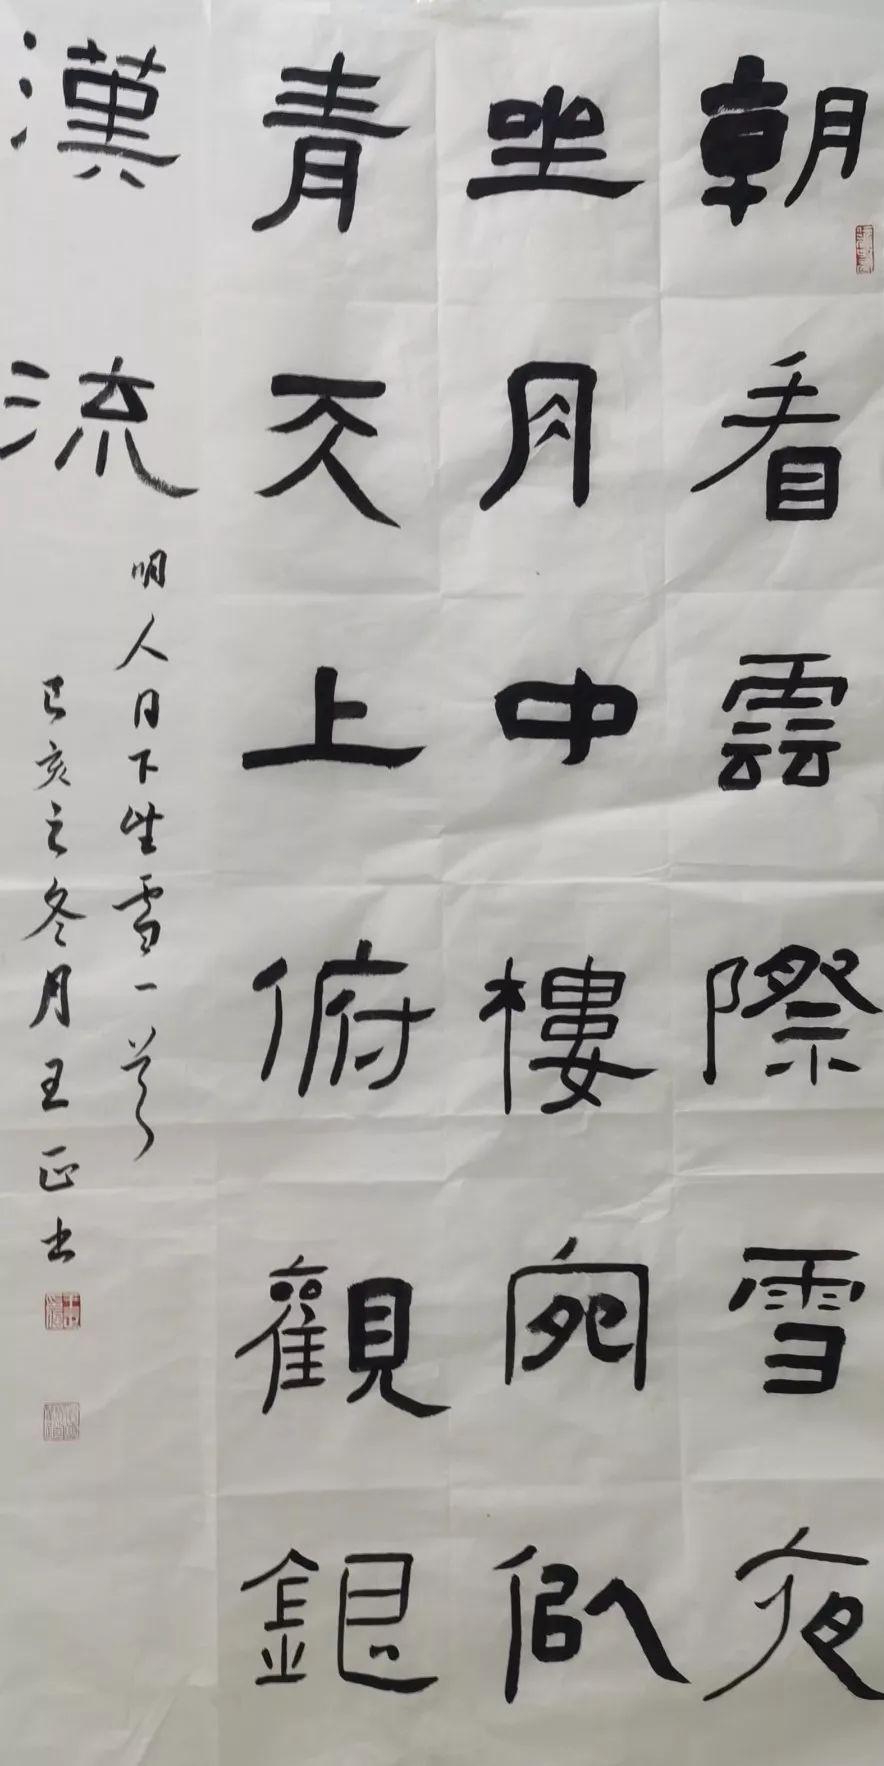 朝看雲際雪夜
坐月中樓宛似
青天上俯觀銀
漢流
明人月下坐雪一首
己亥之冬月王正书